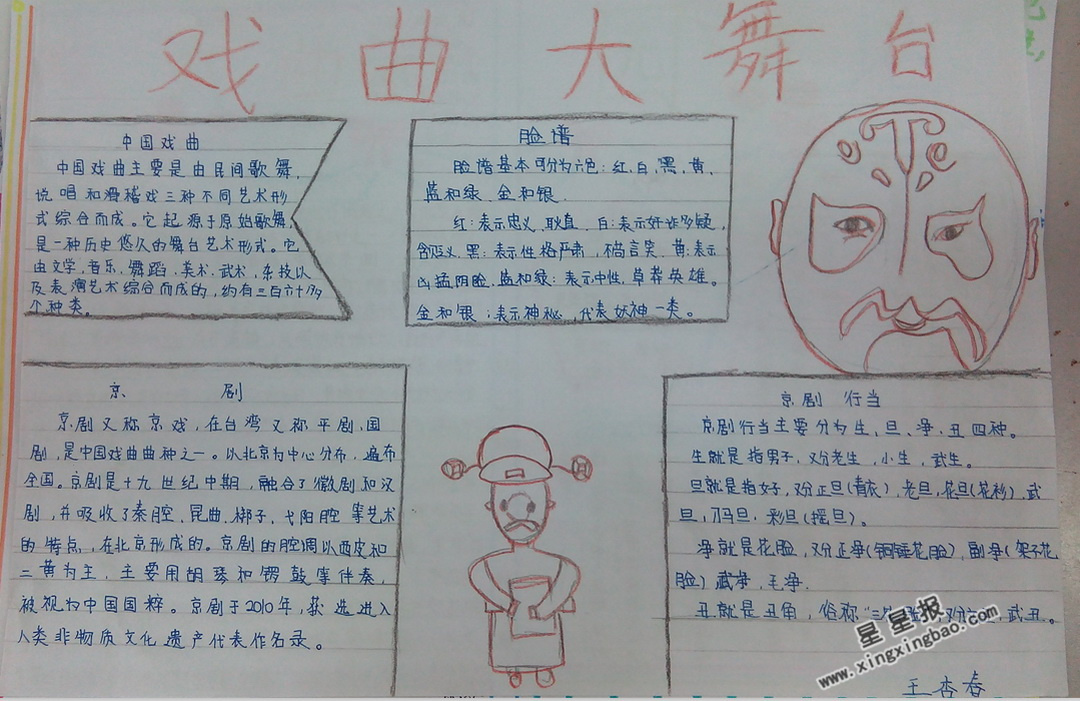 戏曲大舞台
中国戏曲
中国戏曲主要是由民间歌舞,
说唱和滑稽戏三种不同艺术形
式综合而成。它起源于原始歌舞,
是一种历史悠久的舞台艺术形式。它
由文学,音乐、舞蹈、美术、武术、杂技以
及表演艺术综合而成的,约有三百六十多
个种类。
脸谱
脸谱基本可分为六色:红,白,黑,黄,
蓝和绿、金和银.
红:表示忠义、耿直,白:表示奸诈多疑,
含贬义、黑:表示性格严肃,不苟言笑、黄:表示
凶猛阴脸、蓝和绿:表示中性,草莽英雄。
金和银:表示神秘,代表妖神一类。
京剧
京剧又称京戏,在台湾又称平剧、国
剧,是中国戏曲曲种之一。以北京为中心分布,遍布
全国。京剧是十九世纪中期,融合了徽剧和汉
剧,并吸收了秦腔、昆曲、梆子、弋阳腔等艺术
的特点,在北京形成的。京剧的腔调以西皮和
二黄为主,主要用胡琴和锣鼓等伴奏,
被视为中国国粹。京剧于2010年,获选进入
人类非物质文化遗产代表作名录。
京剧 行当
京剧行当主要分为生、旦、净、丑四种。
生就是指男子,又分老生,小生,武生。
旦就是指女子,又分正旦(青衣),老旦,花旦(花衫),武
旦,刀马旦,彩旦(摇旦)。
净就是花脸,又分正净(铜锤花脸),副净(架子花
脸)武净,毛净.
丑就是丑角,俗称“三 又分 ,武丑。
王杏春
星星报
www.xingxingbao.com